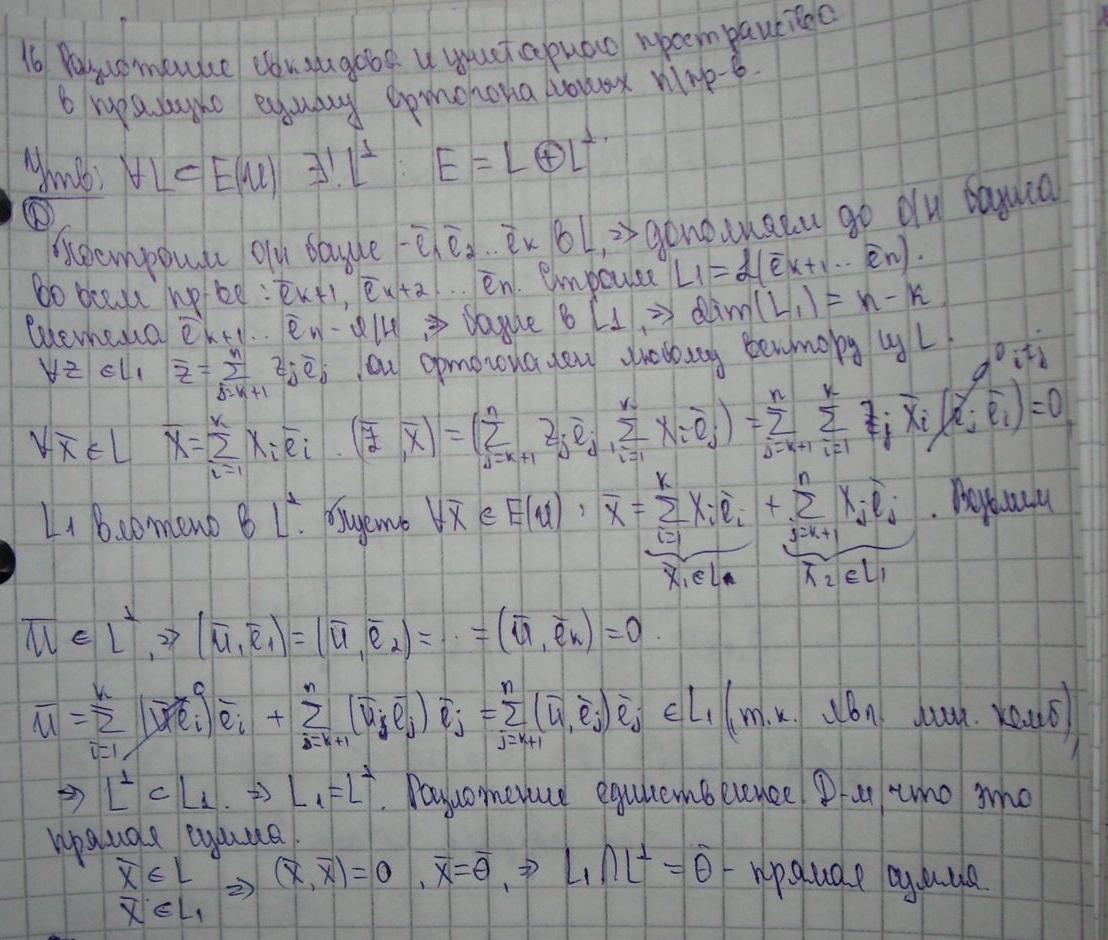 16 Разложение евклидова и унитарного пространства
в прямую сумму ортогональных п/пр-в.
Утв: ∀L ⊂ E(U) ∃! L^⊥ : E = L ⊕ L^⊥.
Д
Построим о/н базис - ē₁ ē₂ .. ēₖ в L, ⇒ дополняем до о/н базиса
во всем пр-ве : ēₖ₊₁, ēₖ₊₂ ... ēₙ. Строим L₁ = ℒ(ēₖ₊₁ ... ēₙ).
Система ēₖ₊₁ .. ēₙ - л/н, ⇒ базис в L₁, ⇒ dim(L₁) = n - k
∀z ∈ L₁ z̄ = ∑_{j=k+1}^{n} zⱼ ēⱼ, он ортогонален любому вектору из L.
∀x̄ ∈ L x̄ = ∑_{i=1}^{k} xᵢ ēᵢ . (z̄, x̄) = (∑_{j=k+1}^{n} zⱼ ēⱼ, ∑_{i=1}^{k} xᵢ ēⱼ) = ∑_{j=k+1}^{n} ∑_{i=1}^{k} zⱼ x̄ᵢ (ēⱼ, ēᵢ) = 0 0, i≠j
L₁ вложено в L^⊥. Пусть ∀x̄ ∈ E(U) : x̄ = ∑_{i=1}^{k} xᵢ ēᵢ + ∑_{j=k+1}^{n} xⱼ ēⱼ . Возьмем
x̄₁ ∈ L x̄₂ ∈ L₁
ū ∈ L^⊥, ⇒ (ū, ē₁) = (ū, ē₂) = .. = (ū, ēₖ) = 0.
ū = ∑_{i=1}^{k} (ū ēᵢ) ēᵢ + ∑_{j=k+1}^{n} (ū, ēⱼ) ēⱼ = ∑_{j=k+1}^{n} (ū, ēⱼ) ēⱼ ∈ L₁ (т.к. явл. лин. комб),
⇒ L^⊥ ⊂ L₁. ⇒ L₁ = L^⊥. Разложение единственное. Д-м, что это
прямая сумма.
x̄ ∈ L
x̄ ∈ L₁ ⇒ (x̄, x̄) = 0, x̄ = θ̄, ⇒ L₁ ∩ L^⊥ = θ̄ - прямая сумма.